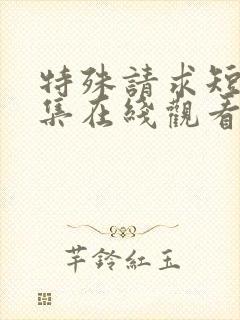 特殊請求短
集在綫觀看
芊鈴紅玉